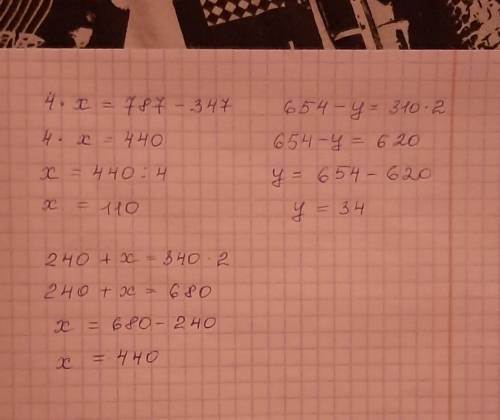 4 · x = 787 - 347
4 · x = 440
x = 440 : 4
x = 110
654 - y = 310 · 2
654 - y = 620
y = 654 - 620
y = 34
240 + x = 340 · 2
240 + x = 680
x = 680 - 240
x = 440